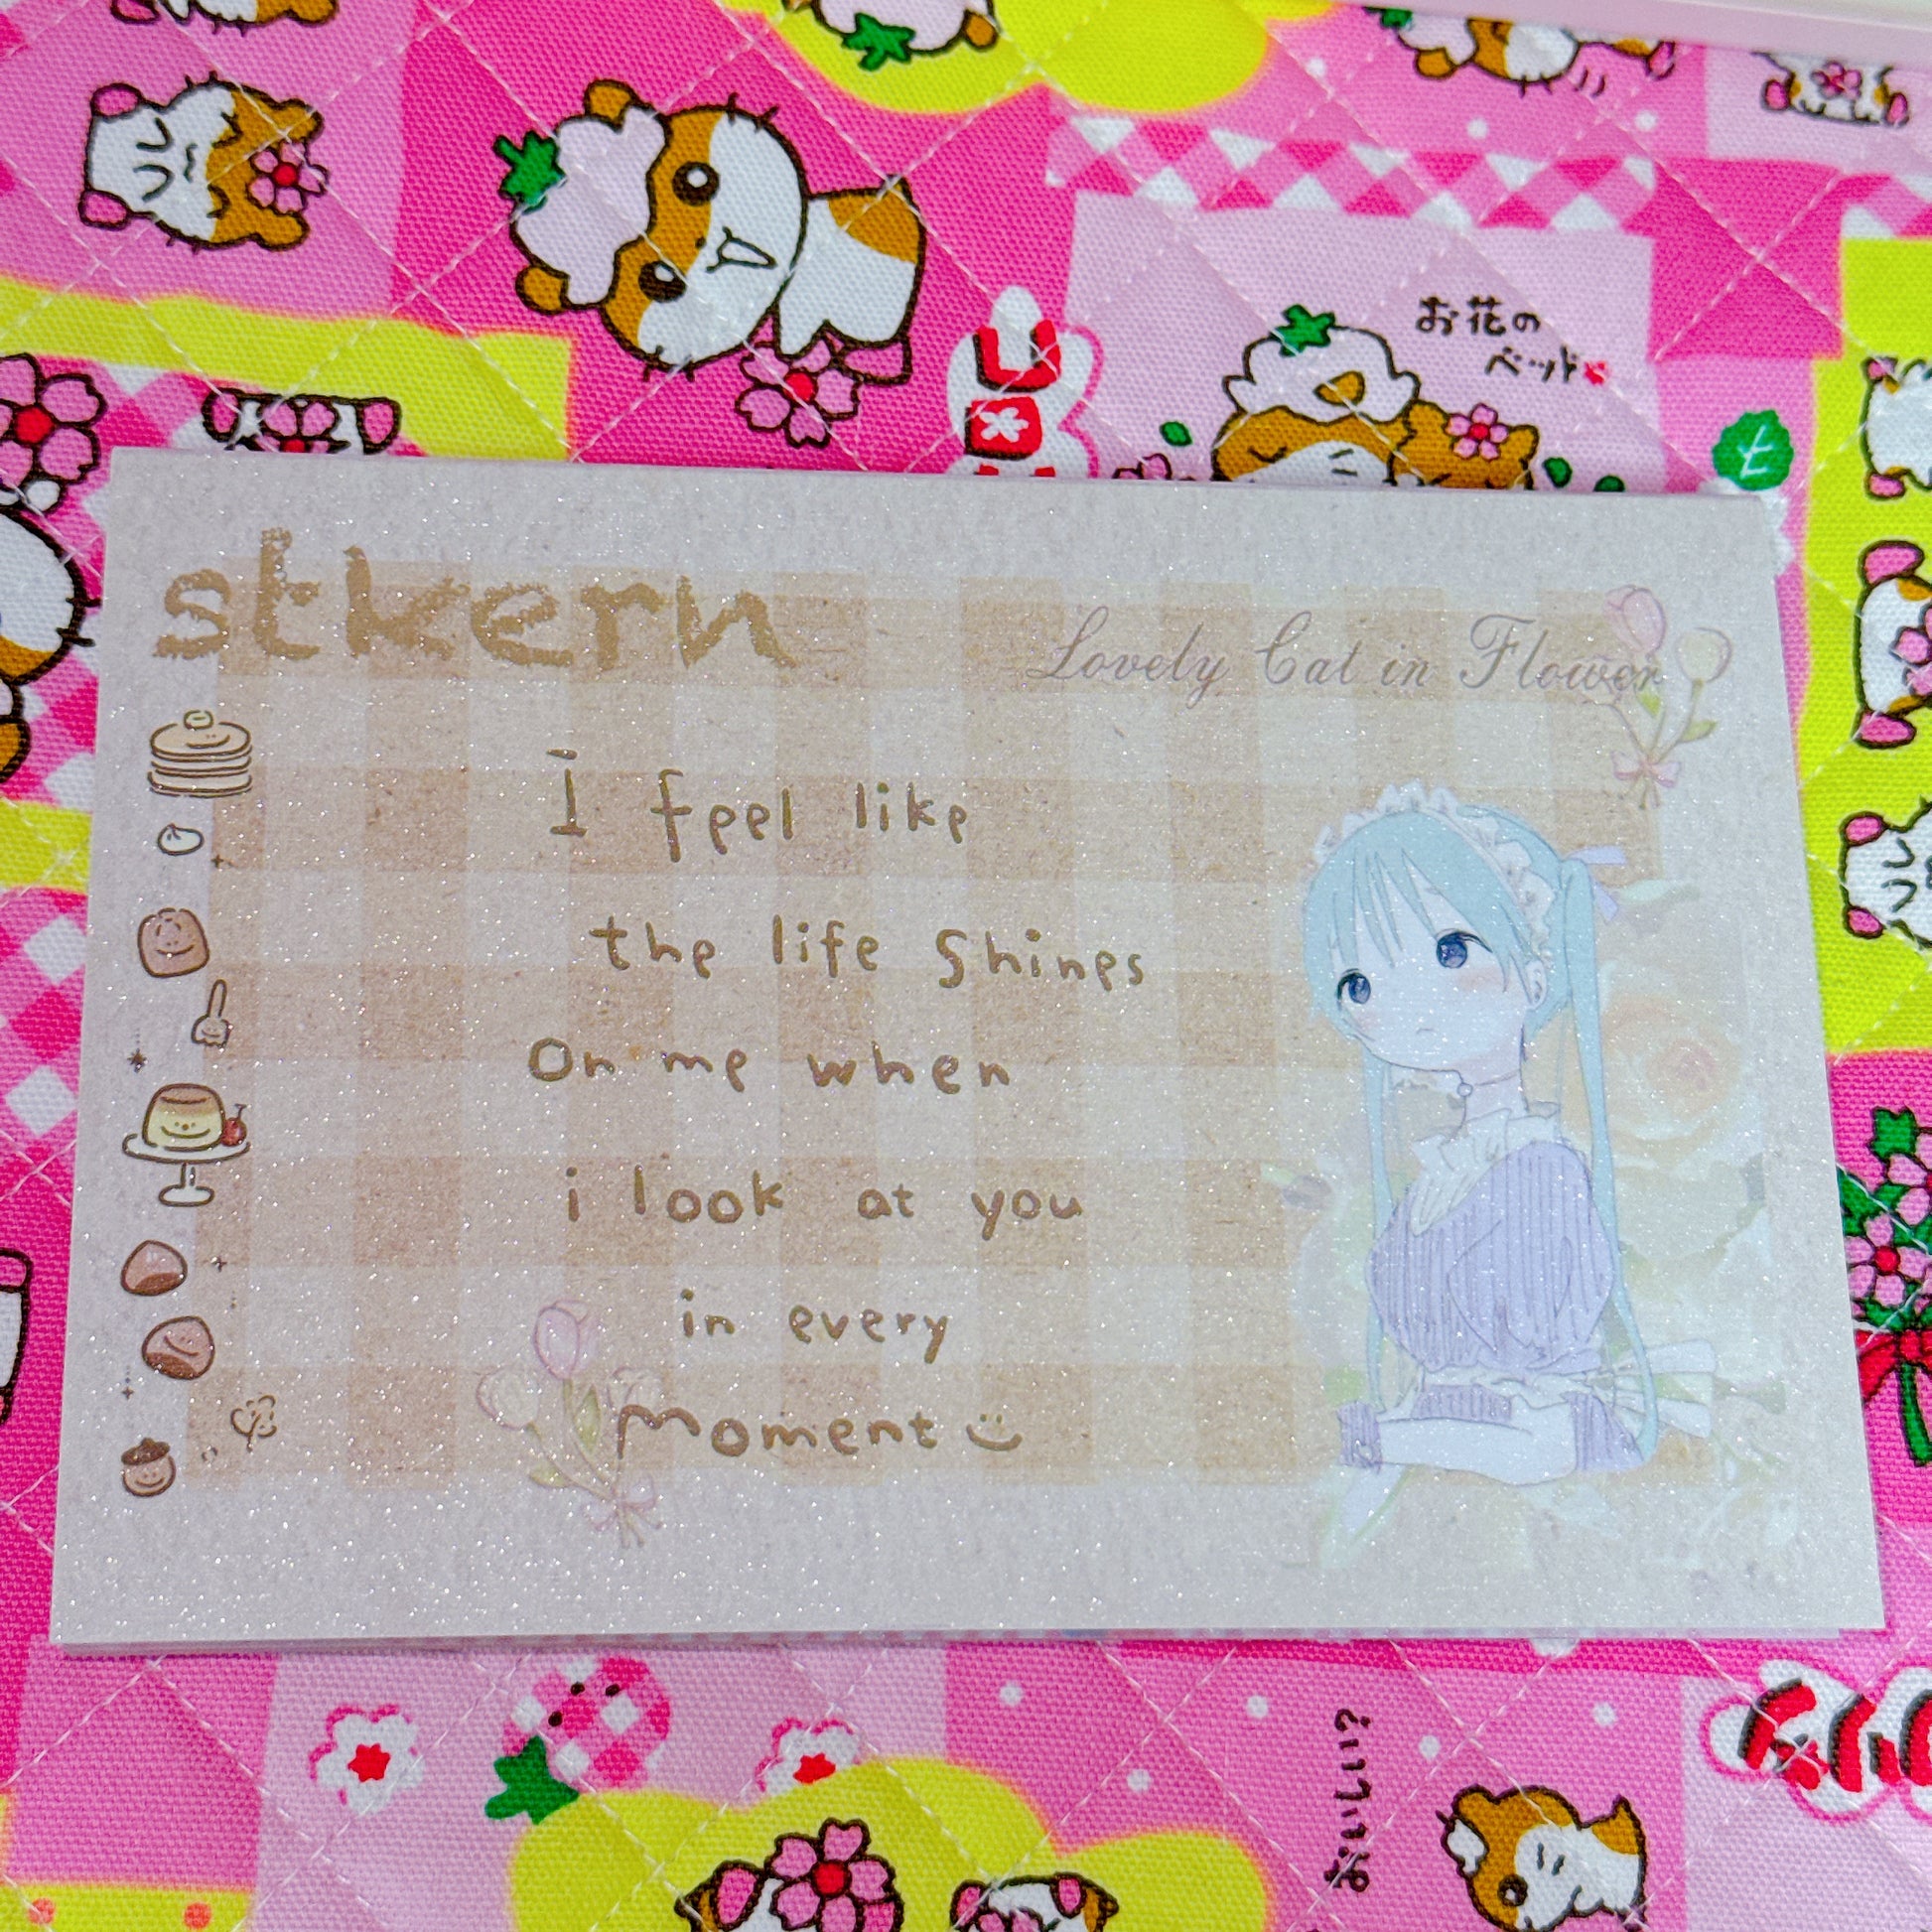 お花の
ベッド
stkern
Lovely Cat in Flower
I feel like
the life shines
On me when
i look at you
in every
Moment
おいしい?